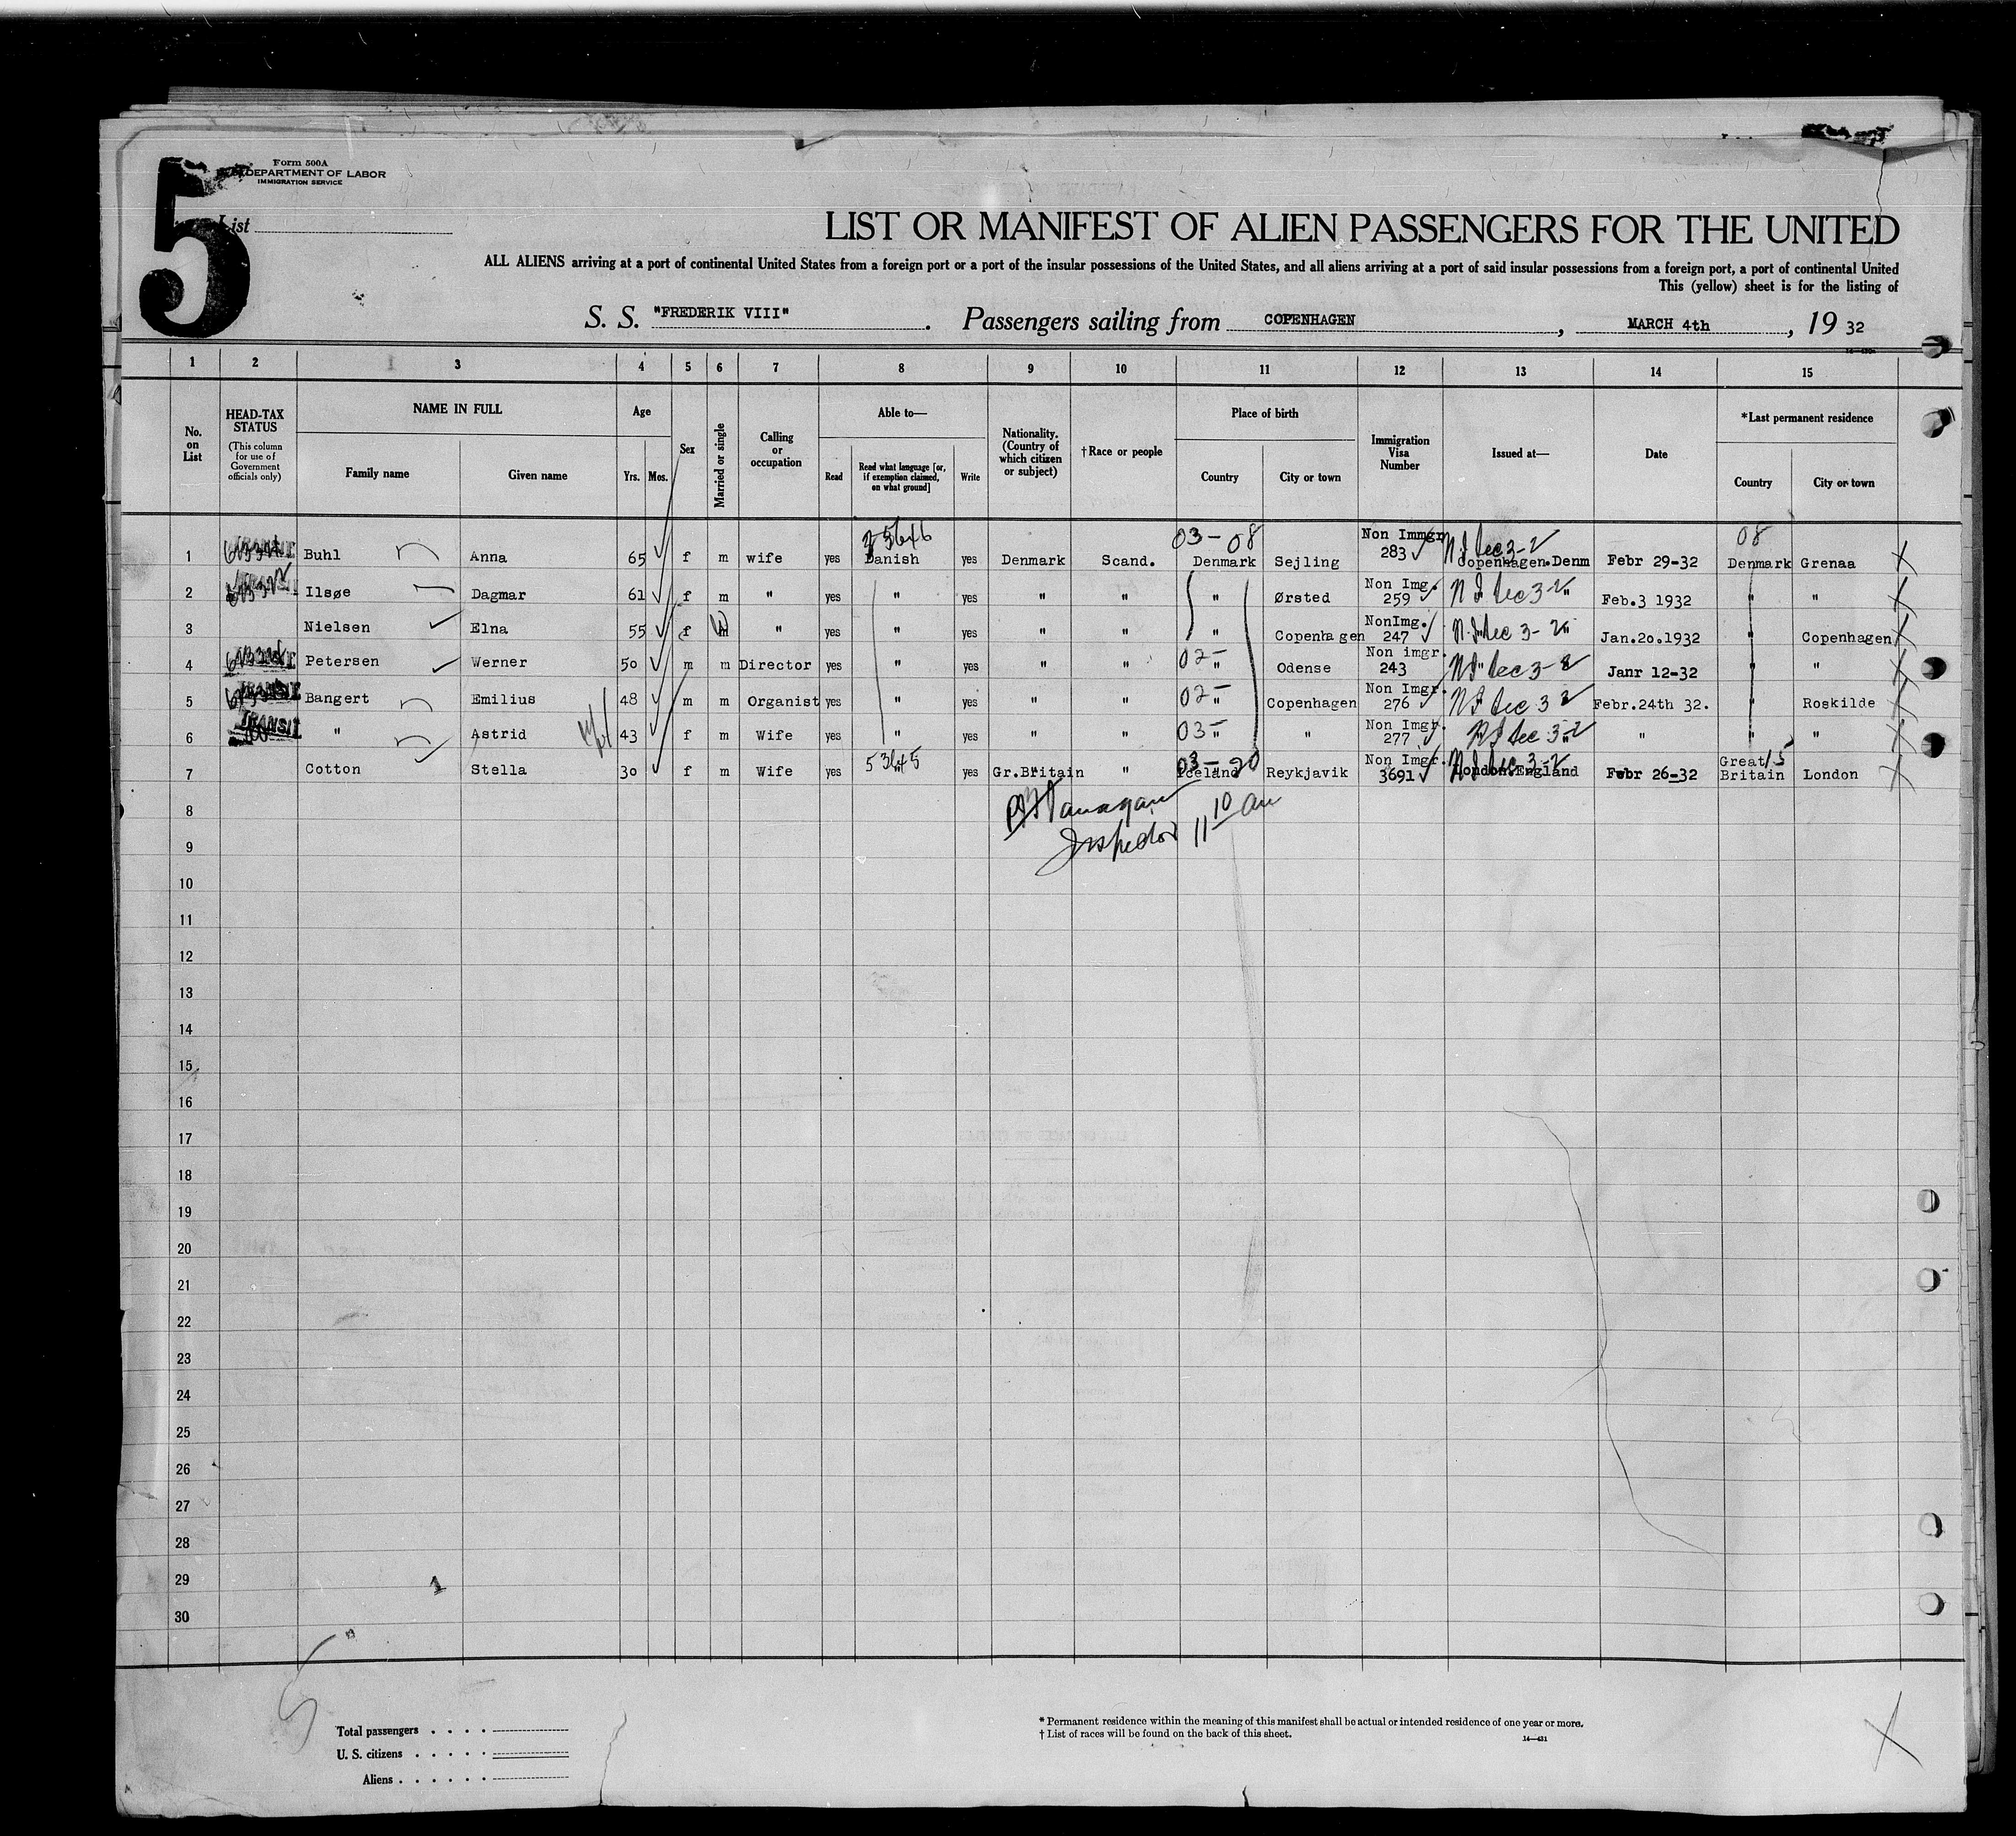 5
Form 500A
DEPARTMENT OF LABOR
IMMIGRATION SERVICE
List
LIST OR MANIFEST OF ALIEN PASSENGERS FOR THE UNITED
ALL ALIENS arriving at a port of continental United States from a foreign port or a port of the insular possessions of the United States, and all aliens arriving at a port of said insular possessions from a foreign port, a port of continental United
This (yellow) sheet is for the listing of
S. S. "FREDERIK VIII" . Passengers sailing from COPENHAGEN , MARCH 4th , 19 32
1 2 3 4 5 6 7 8 9 10 11 12 13 14 15
No. on List
HEAD-TAX STATUS
(This column for use of Government officials only)
NAME IN FULL
Family name Given name
Age
Yrs. Mos.
Sex
Married or single
Calling or occupation
Able to—
Read
Read what language [or, if exemption claimed, on what ground]
Write
Nationality. (Country of which citizen or subject)
†Race or people
Place of birth
Country City or town
Immigration Visa Number
Issued at—
Date
*Last permanent residence
Country City or town
03 - 08 Non Immgr 08
1 TRANSIT Buhl Anna 65 f m wife yes Danish yes Denmark Scand. Denmark Sejling 283 Copenhagen.Denm Febr 29-32 Denmark Grenaa
2 TRANSIT Ilsøe Dagmar 61 f m " yes " yes " " " Ørsted Non Img. 259 " Feb.3 1932 " "
3 Nielsen Elna 55 f m " yes " yes " " " Copenhagen NonImg. 247 " Jan.20.1932 " Copenhagen
4 Petersen Werner 50 m m Director yes " yes " " 02- " Odense Non imgr. 243 " Janr 12-32 " "
5 TRANSIT Bangert Emilius 48 m m Organist yes " yes " " 02- " Copenhagen Non Imgr. 276 Febr.24th 32. " Roskilde
6 TRANSIT " Astrid 43 f m Wife yes " yes " " 03- " " Non Imgr. 277 " " " "
7 Cotton Stella 30 f m Wife yes " yes Gr.Britain " 03-20 Iceland Reykjavik Non Imgr. 3691 London.England Febr 26-32 Great Britain 15 London
8
Inspector 11 10 am
9
10
11
12
13
14
15
16
17
18
19
20
21
22
23
24
25
26
27
28
29
30
Total passengers . . . .
U. S. citizens . . . . .
Aliens . . . . . .
* Permanent residence within the meaning of this manifest shall be actual or intended residence of one year or more.
† List of races will be found on the back of this sheet.
14—431